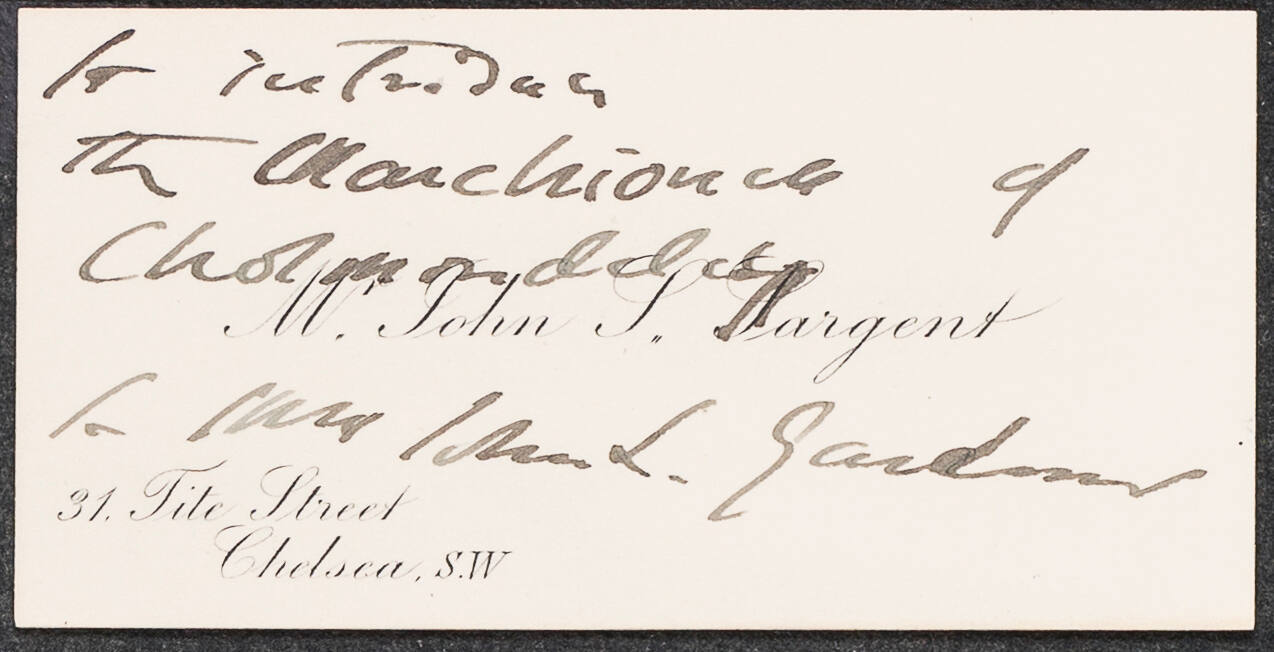 to introduce
the Marchioness of
Cholmondeley
Mr. John S. Sargent
to Mrs John L. Gardner
31. Tite Street
Chelsea, S.W